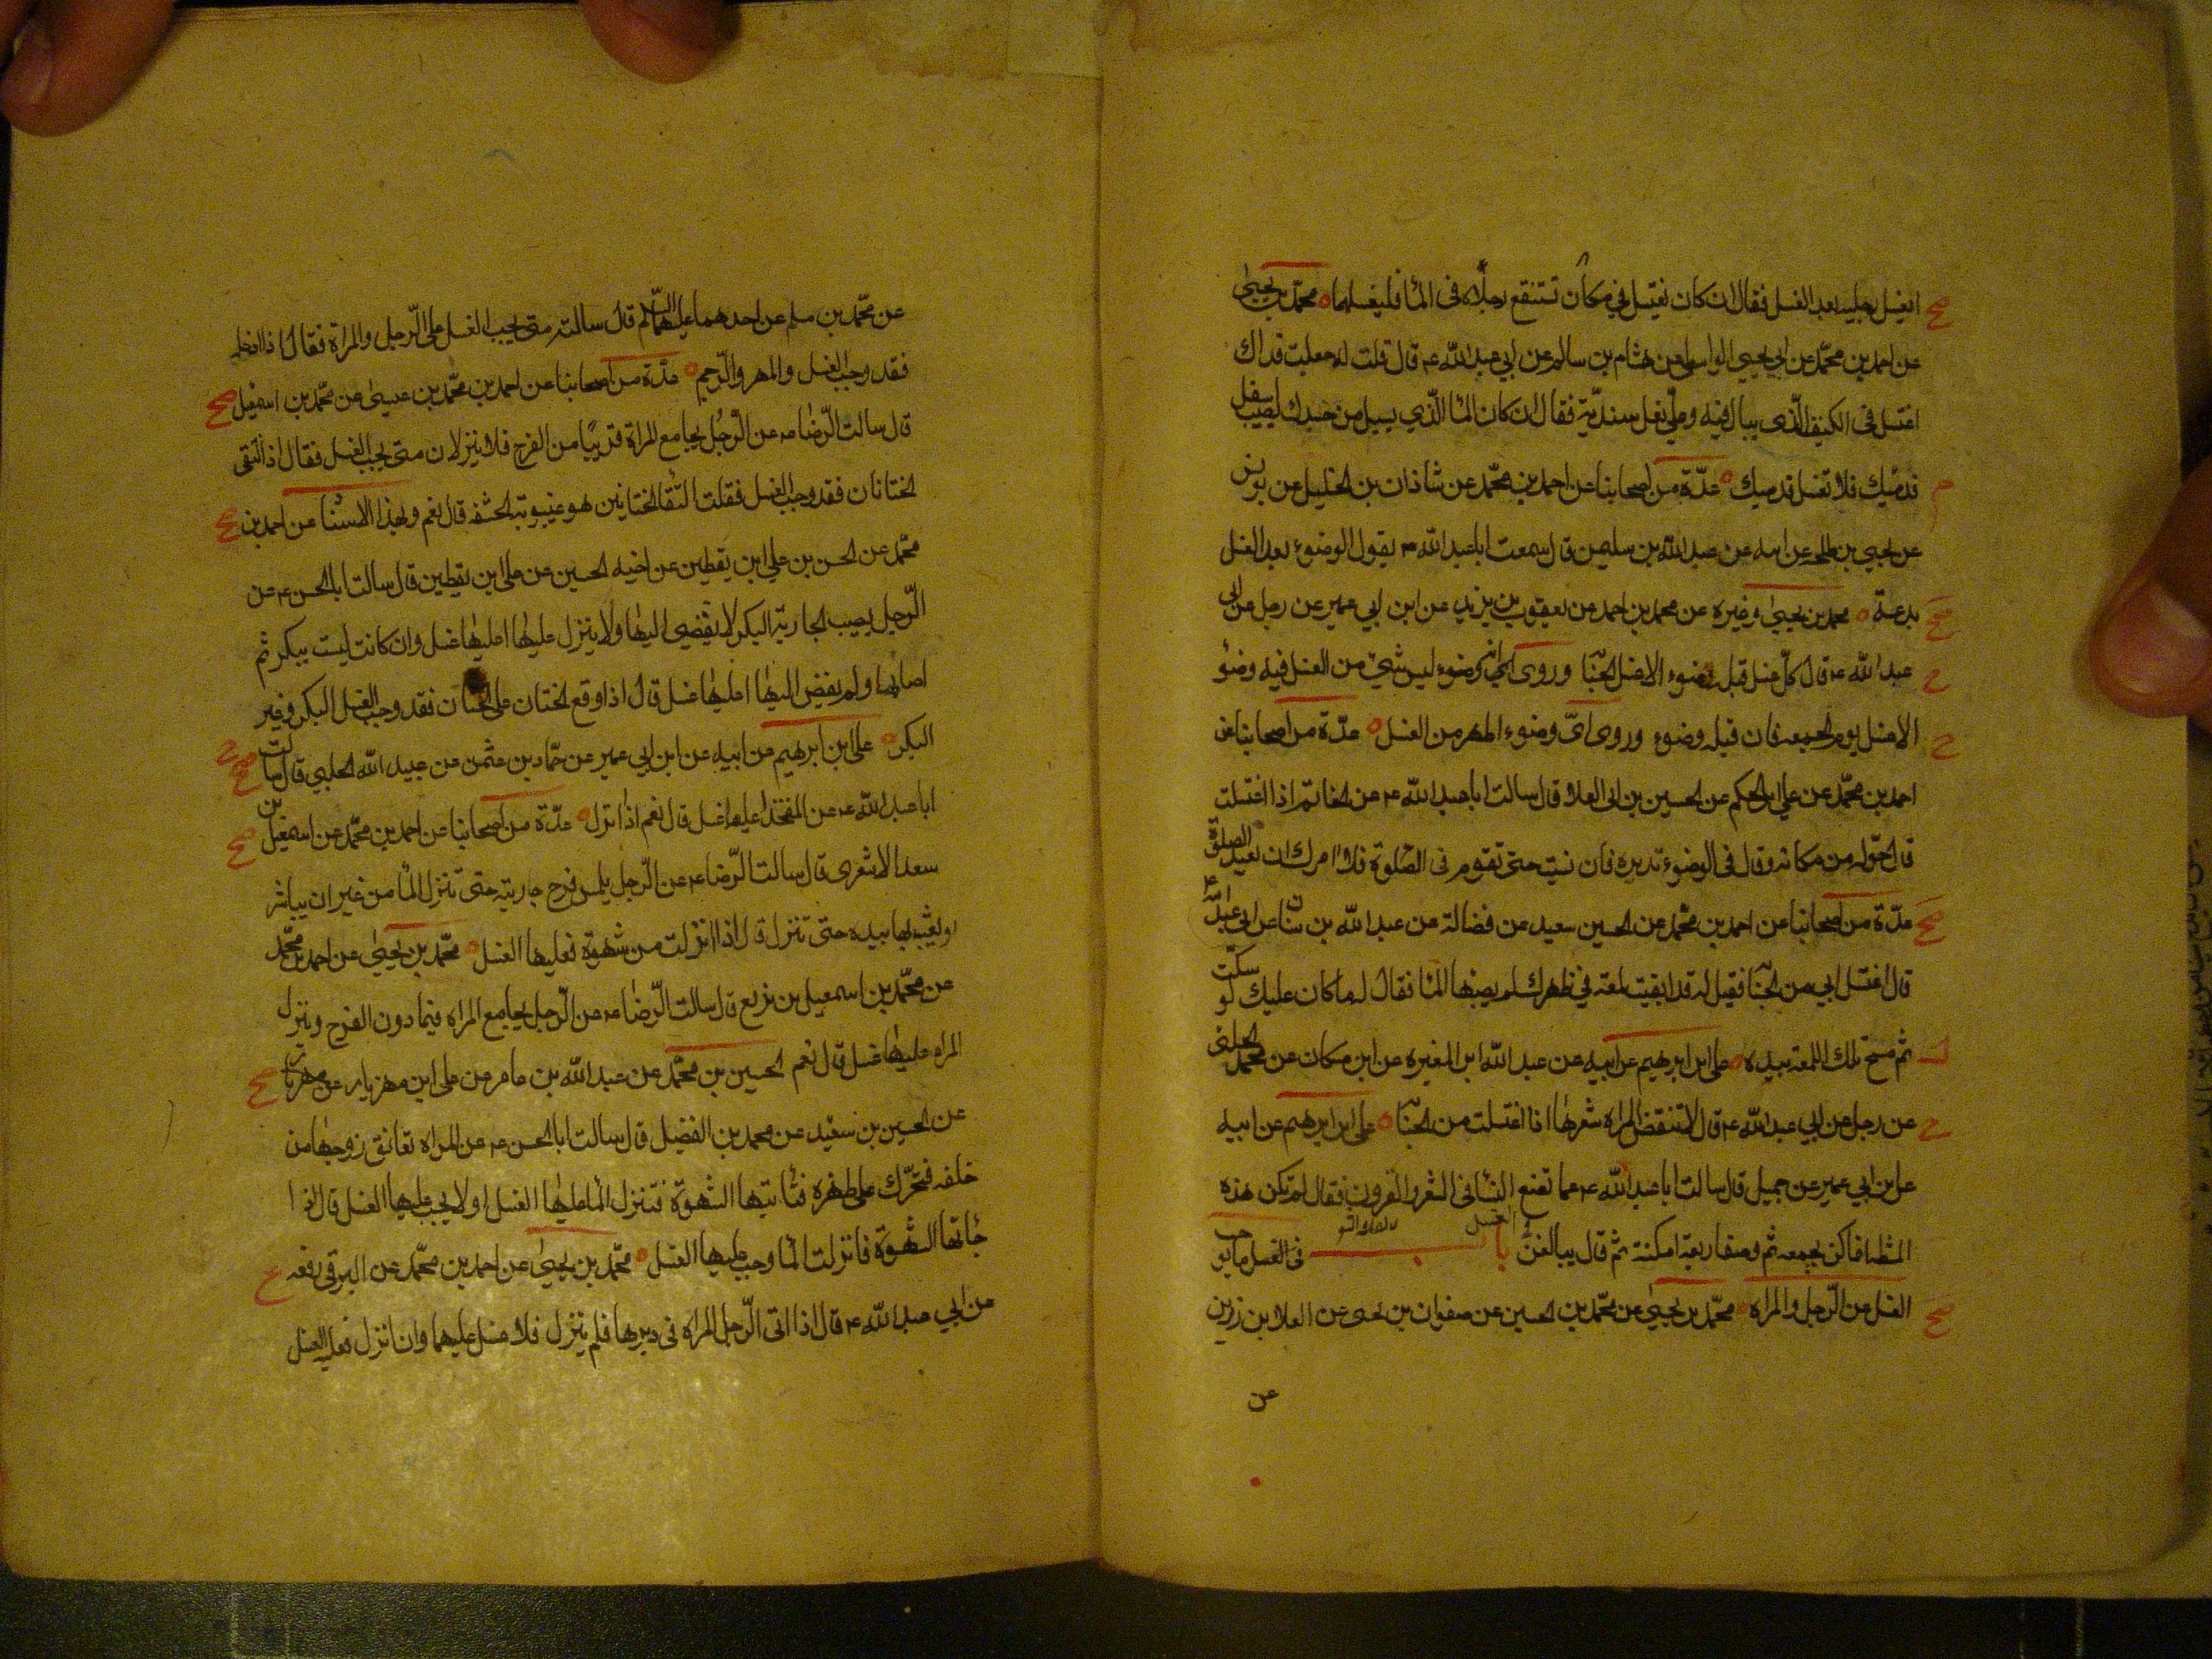 ايغسل رجليه بعد الغسل فقال ان كان يغتسل في مكان تستنقع رجلاه في الماء فليغسلهما محمد بن يحيى
عن احمد بن محمد عن ابي يحيى الواسطي عن هشام بن سالم عن ابي عبد الله ع قال قلت له جعلت فداك
اغتسل في الكنيف الذي يبال فيه وعلي نعل سندية فقال ان كان الماء الذي يسيل من جسدك يصيب اسفل
قدميك فلا تغسل قدميك عدة من اصحابنا عن احمد بن محمد عن شاذان بن الخليل عن يونس
عن يحيى بن طلحه عن ابيه عن عبد الله بن سليمن قال سمعت ابا عبد الله ع يقول الوضوء بعد الغسل
بدعة محمد بن يحيى وغيره عن محمد بن احمد عن يعقوب بن يزيد عن ابن ابي عمير عن رجل عن ابي
عبد الله ع قال كل غسل قبله وضوء الا غسل الجنابة وروى انه ليس شيء من الغسل فيه وضوء
الا غسل يوم الجمعه فان قبله وضوء وروى اي وضوء اطهر من الغسل عدة من اصحابنا عن
احمد بن محمد عن علي ابن الحكم عن الحسين بن ابي العلا قال سالت ابا عبد الله ع عن الخاتم اذا اغتسلت
قال حوله من مكانه وقال في الوضوء تديره فان نسيت حتى تقوم في الصلوة فلا امرك ان تعيد الصلوة
عدة من اصحابنا عن احمد بن محمد عن الحسين سعيد عن فضالة عن عبد الله بن سنان عن ابي عبد الله ع
قال اغتسل ابي من الجنابة فقيل له قد ابقيت لمعة في ظهرك لم يصبها الماء فقال له ما كان عليك لو سكت
ثم مسح تلك اللمعة بيده علي ابن ابرهيم عن ابيه عن عبد الله ابن المغيره عن ابن مسكان عن محمد الحلبي
عن رجل عن ابي عبد الله ع قال لا تنقض المراة شعرها اذا اغتسلت من الجنابة علي ابن ابرهيم عن ابيه
عن ابن ابي عمير عن جميل قال سالت ابا عبد الله ع عما تصنع النساء في الشعر والقرون فقال لم تكن هذه
المشطة انما كن يجمعنه ثم وصف اربعة امكنة ثم قال يبالغن في الغسل باب ما يوجب
الغسل عن الرجل والمراة محمد بن يحيى عن محمد بن الحسين عن صفوان بن يحيى عن العلا بن رزين
عن
عن محمد بن مسلم عن احدهما عليهما السلام قال سالته متى يجب الغسل على الرجل والمراة فقال اذا ادخله
فقد وجب الغسل والمهر والرجم عدة من اصحابنا عن احمد بن محمد بن عيسى عن محمد بن اسمعيل
قال سالت الرضا ع عن الرجل يجامع المراة قريبا من الفرج فلا ينزلان متى يجب الغسل فقال اذا التقى
الختانان فقد وجب الغسل فقلت التقا الختانين هو غيبوبة الحشفه قال نعم وبهذا الاسناد عن احمد بن
محمد عن الحسن بن علي ابن يقطين عن اخيه الحسين عن علي ابن يقطين قال سالت ابا الحسن ع عن
الرجل يصيب الجارية البكر لا يفضي اليها ولا ينزل عليها اعليها غسل وان كانت ليست ببكر ثم
اصابها ولم يفض اليها اعليها غسل قال اذا وقع الختان على الختان فقد وجب الغسل البكر وغير
البكر علي ابن ابرهيم عن ابيه عن ابن ابي عمير عن حماد بن عثمن عن عبيد الله الحلبي قال سالت
ابا عبد الله ع عن المفخذ اعليه غسل قال نعم اذا انزل عدة من اصحابنا عن احمد بن محمد عن اسمعيل بن
سعد الاشعرى قال سالت الرضا ع عن الرجل يلمس فرج جاريته حتى تنزل الماء من غير ان يباشر
ويعبث بها بيده حتى تنزل قال اذا انزلت من شهوة فعليها الغسل محمد بن يحيى عن احمد بن محمد
عن محمد بن اسمعيل بن بزيع قال سالت الرضا ع عن الرجل يجامع المراه فيما دون الفرج وتنزل
المراه عليها غسل قال نعم الحسين بن محمد عن عبد الله بن عامر عن علي ابن مهزيار
عن الحسين بن سعيد عن محمد بن الفضيل قال سالت ابا الحسن ع عن المراه تعانق زوجها من
خلفه فتحرك على ظهره فتاتيها الشهوة فتنزل الماء عليها الغسل او لا يجب عليها الغسل قال اذا
جاتها الشهوة فانزلت الماء وجب عليها الغسل محمد بن يحيى عن احمد بن محمد عن البرقي رفعه
عن ابي عبد الله ع قال اذا اتى الرجل المراه في دبرها فلم ينزل فلا غسل عليهما وان انزل فعليه الغسل